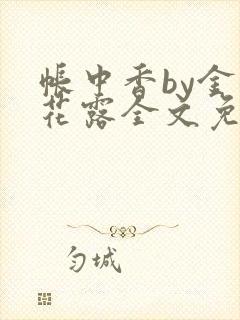 帐中香by金
花露全文免
匀城